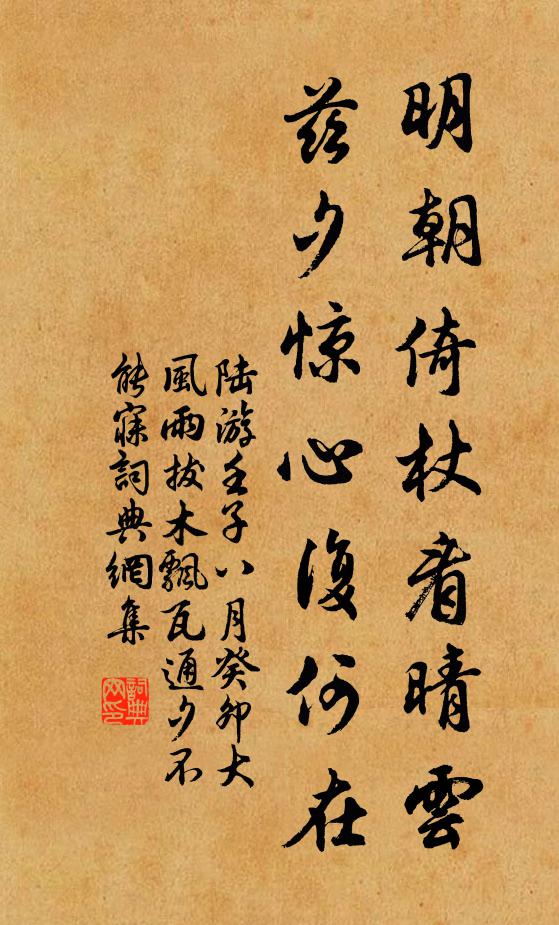 明朝倚杖看晴雲
茲夕惊心復何在
陸游壬子八月癸卯大
風雨拔木飄瓦通夕不
能寐詞典網集
詞典
网印